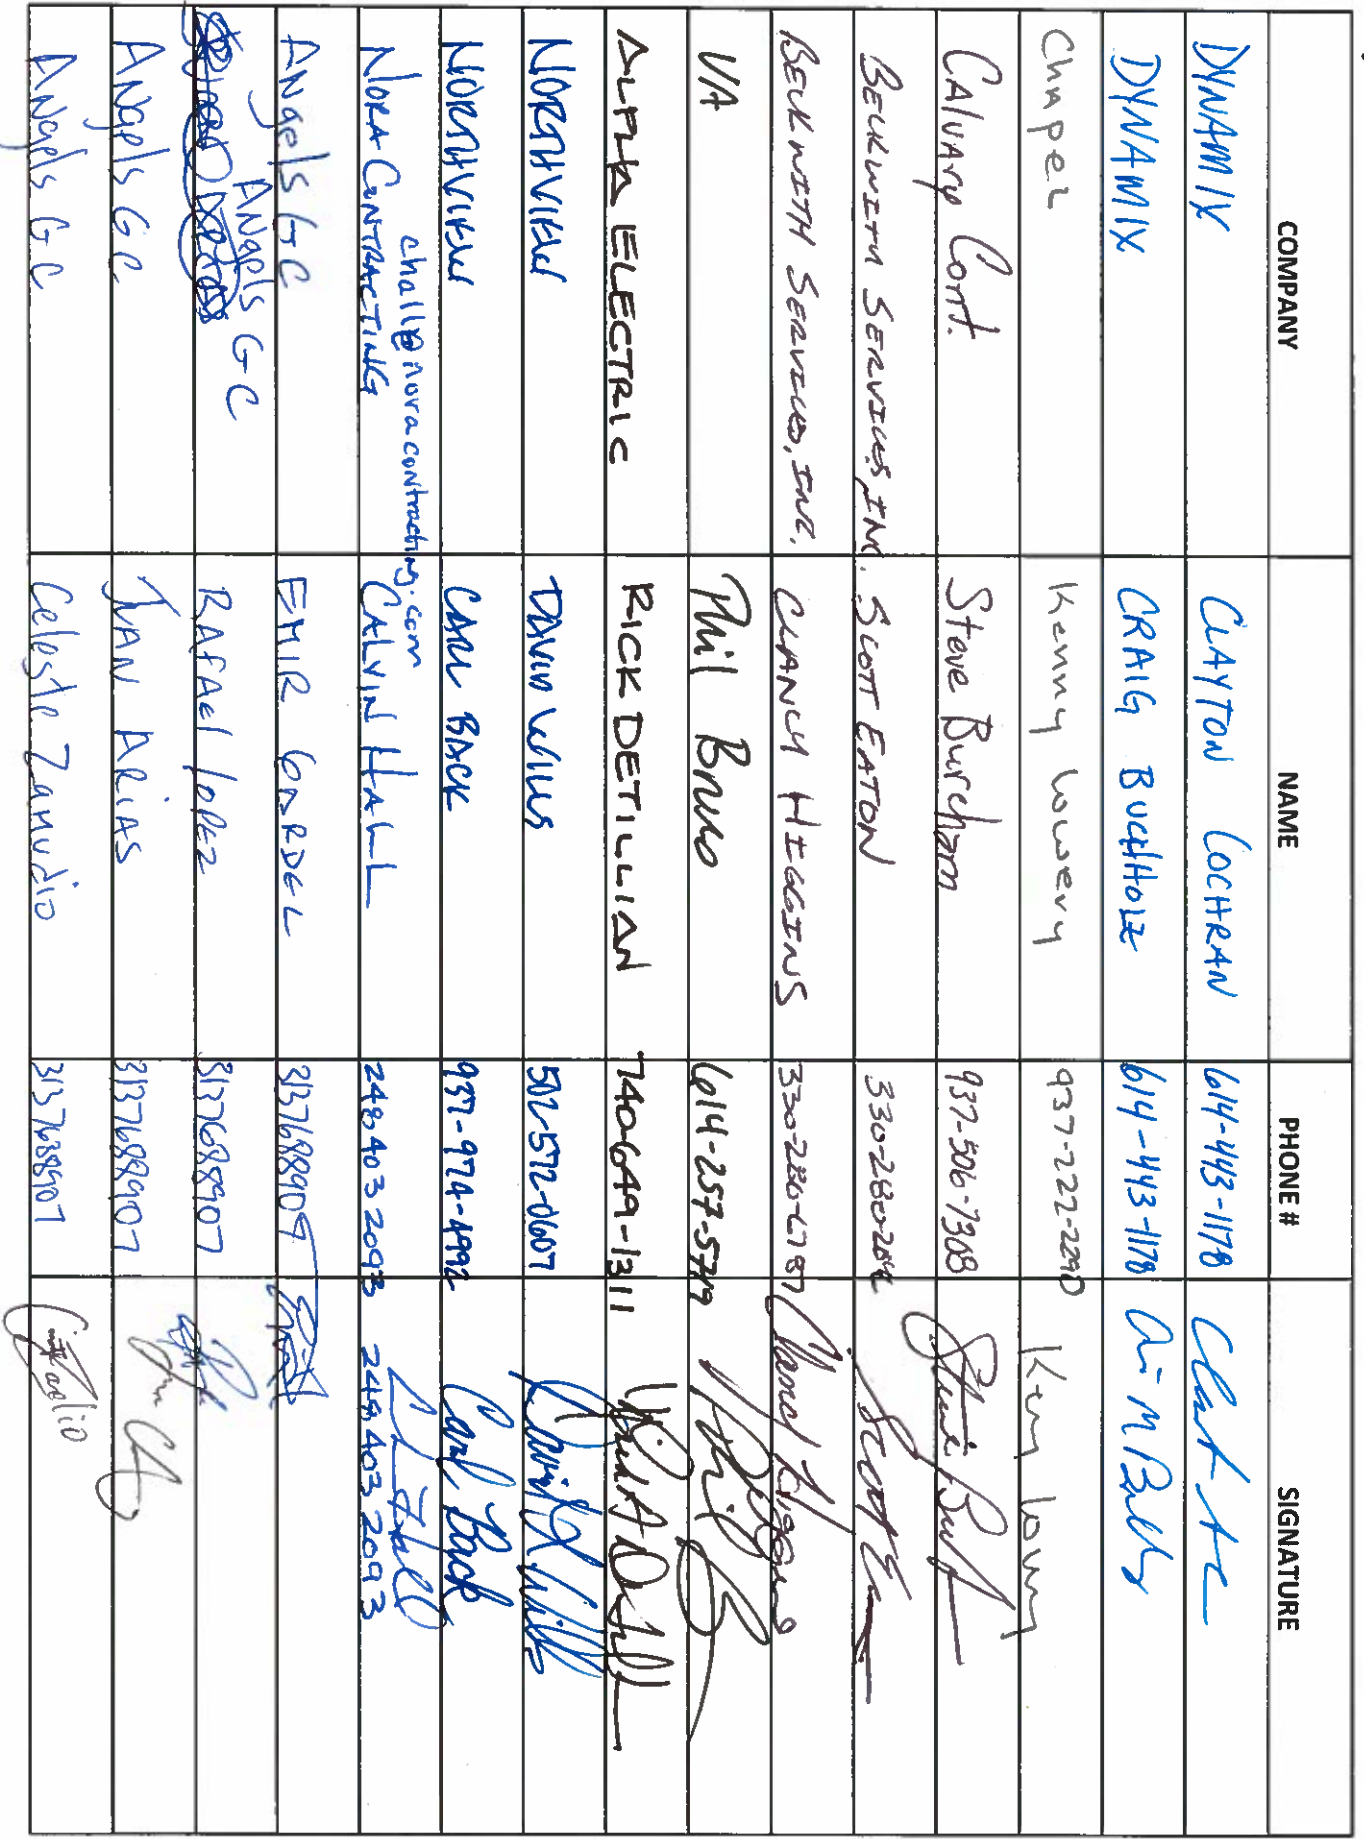 COMPANY NAME PHONE # SIGNATURE
DYNAMIX CLAYTON COCHRAN 614-443-1178
DYNAMIX CRAIG BUCHHOLZ 614-443-1178
Chapel Kenny Lowery 937-222-2290 Kenny Lowery
CAlvary Cont. Steve Burcham 937-506-7308
BECKWITH SERVICES, INC. SCOTT EATON Scott
BECKWITH SERVICES, INC. CLANCY HIGGINS Clancy Higgins
VA Phil Bruno 614-257-5719
ALPHA ELECTRIC RICK DETILLIAN 740-649-1311
NORTHVIEW DAVID WILLS 502-572-0607 David Wills
NORTHVIEW CARL BACK 937-974-4992 Carl Back
chall@noracontracting.com
NORA CONTRACTING CALVIN HALL 248,403 2093 248,403 2093
Angels GC EMIR GARDEL 3137688907
Angels GC RAfAel lopez 3137688907
ANgels GC JUAN ARIAS 3137688907
ANgels GC Celeste Zamudio 3137688907